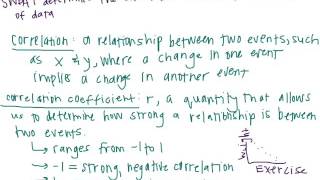 of data
correlation: a relationship between two events, such
as x & y, where a change in one event
implies a change in another event
correlation coefficient: r, a quantity that allows
us to determine how strong a relationship is between
two events.
↳ ranges from -1 to 1
↳ -1 = strong, negative correlation
Exercise